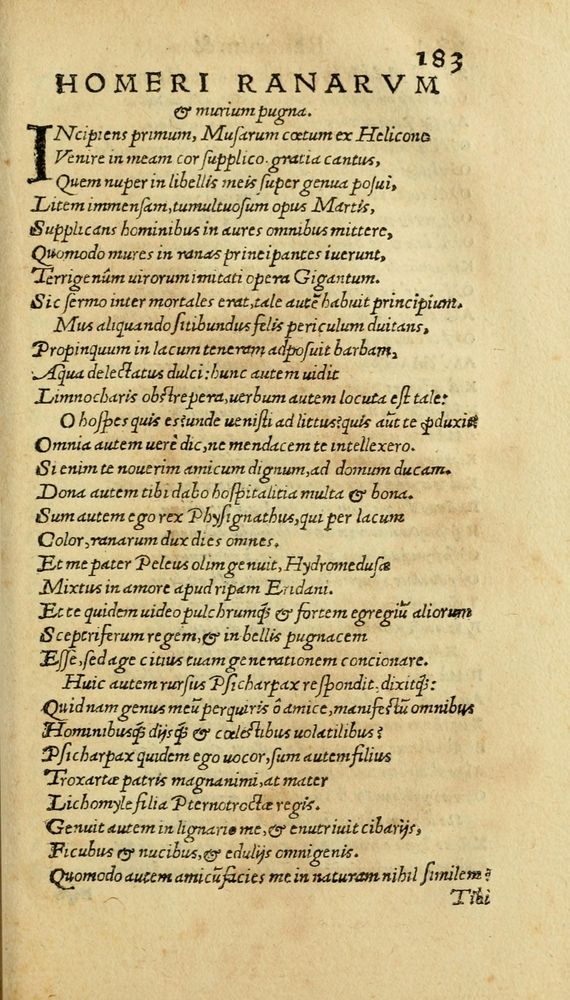 183
HOMERI RANARVM
& murium pugna.
INcipiens primum, Musarum cœtum ex Helicone
Venire in meam cor supplico gratia cantus,
Quem nuper in libellis meis super genua posui,
Litem immensam, tumultuosum opus Martis,
Supplicans hominibus in aures omnibus mittere,
Quomodo mures in ranas principantes iuerunt,
Terrigenûm uirorum imitati opera Gigantum.
Sic sermo inter mortales erat, tale autē habuit principium.
Mus aliquando sitibundus felis periculum duitans,
Propinquum in lacum teneram adposuit barbam,
Aqua delectatus dulci: hunc autem uidit
Limnocharis obstrepera, uerbum autem locuta est tale:
O hospes quis es? unde uenisti ad littus? quis aut te ꝓduxit?
Omnia autem uerè dic, ne mendacem te intellexero.
Si enim te nouerim amicum dignum, ad domum ducam.
Dona autem tibi dabo hospitalitia multa & bona.
Sum autem ego rex Physignathus, qui per lacum
Color, ranarum dux dies omnes.
Et me pater Peleus olim genuit, Hydromedusæ
Mixtus in amore apud ripam Eridani.
Et te quidem uideo pulchrumq; & fortem egregiū aliorum
Sceptriferum regem, & in bellis pugnacem
Esse, sed age citius tuam generationem concionare.
Huic autem rursus Psicharpax respondit, dixitq;:
Quid nam genus meū perquiris ô amice, manifestū omnibus
Hominibusq; dijsq; & cœlestibus uolatilibus?
Psicharpax quidem ego uocor, sum autem filius
Troxartæ patris magnanimi, at mater
Lichomyle filia Pternotroctæ regis.
Genuit autem in lignario me, & enutriuit cibarijs,
Ficubus & nucibus, & edulijs omnigenis.
Quomodo autem amicū facies me in naturam nihil similem?
Tibi